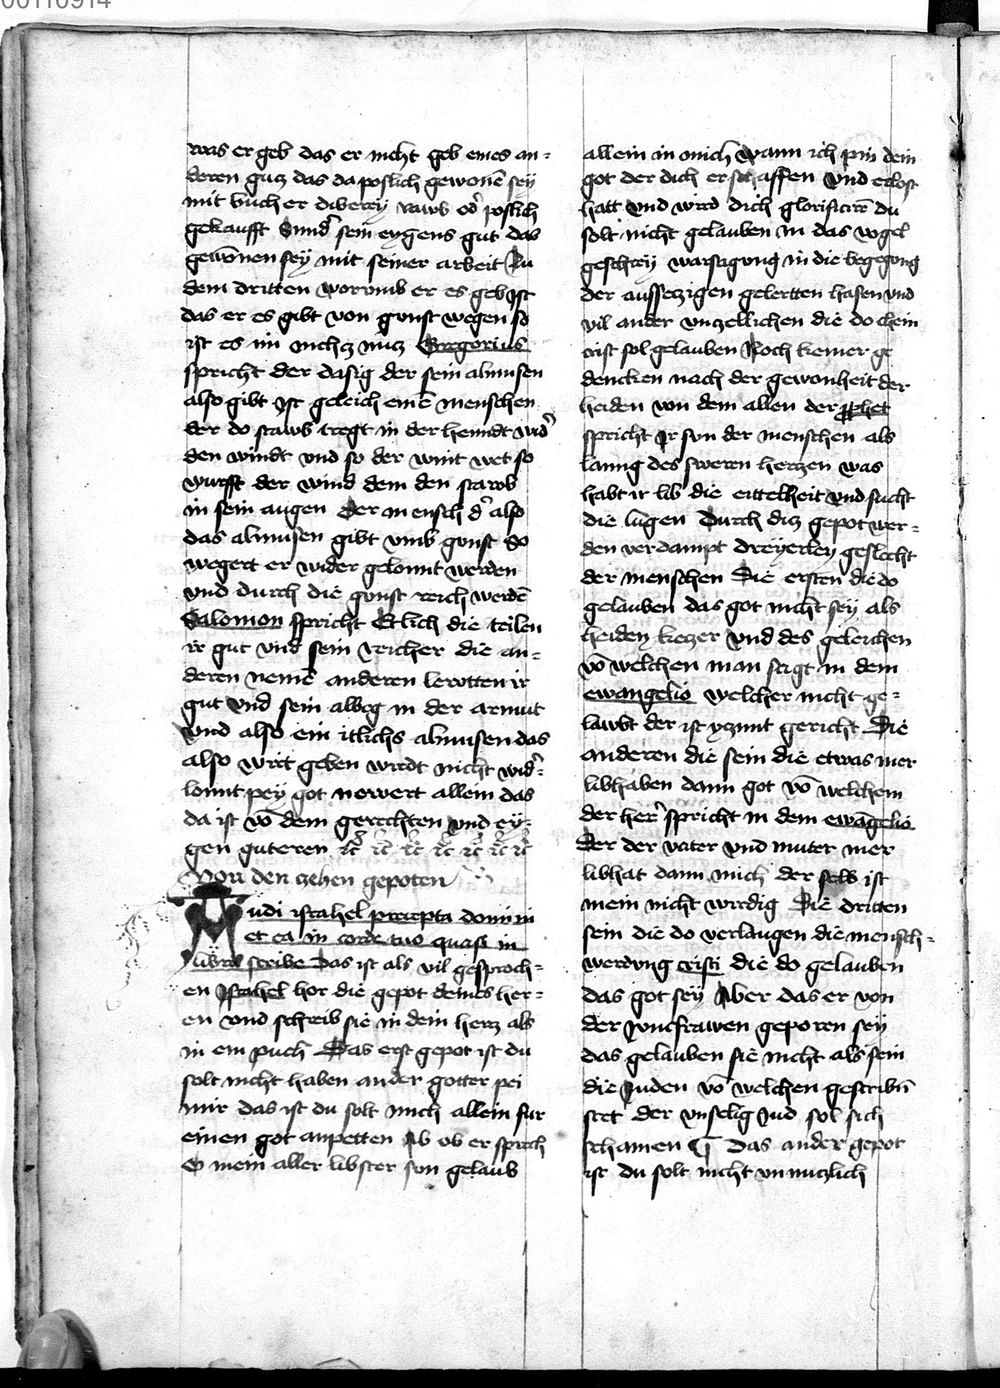 00110914
was er geb das er nicht geb eines an=
deren gutz das da poslich gewonē sey
mit wucher diberey raub od' poslich
gekaufft Sund' sein eygens gut das
gewonen sey mit seiner arbeit Zu
dem dritten worumb er es geb Ist
das er es gibt von gunst wegen so
ist es im nichtz nutz Gregorius
spricht der dasig der sein almusen
also gibt Ist geleich einē menschen
der do stawb tregt in der henndt wid'
den windt vnd so der wint wet so
wurfft der wind dem den stawb
in sein augen Der mensch d' also
das almusen gibt vmb gunst So
wegert er wider gelonnt werden
vnd durch die gunst reich werdē
Salomon spricht Etlich die teilen
ir gut vnd sein reicher die an=
deren nemē anderen lewtten ir
gut vnd sein alweg in der armut
vnd also ein itlichs almusen das
also wirt geben wirdt nicht wid'=
lonnt pey got newert allein das
da ist vō dem gerechten vnd ey=
gen guteren ꝛc ꝛc ꝛc ꝛc ꝛc ꝛc ꝛc
Von den zehen gepoten
Audi israhel precepta domini
et ea in corde tuo quasi in
libro scribe Das ist als vil gesproch=
en Israhel hor die gepot deines her=
en vnd schreib sie in dein hertz als
in ein puch Das erst gepot ist du
solt nicht haben ander gotter pei
mir das ist du solt mich allein fur
einen got anpetten Als ob er sprech
O mein aller libster sun gelaub
allein in mich wann ich pin dein
got der dich erschaffen vnd erlost
hatt vnd wird dich glorificirē du
solt nicht gelauben in das vogel
geschrey warsagung in die begegung
der aussetzigen gelertten hasen vnd
vil ander vnzellichen die do chein
crist sol gelauben Noch keiner ge
dencken nach der gewonheit der
heiden von dem allen der prophet
spricht Ir sun der menschen als
lanng des sweren hertzen was
habt ir lib die eittelheit vnd sucht
die lugen Durch ditz gepot wer=
den verdampt dreyerley geslecht
der menschen Die ersten die do
gelauben das got nicht sey als
heiden ketzer vnd des geleichen
vō welchen man sagt in dem
ewangelio welcher nicht ge=
lawbt der ist yzunt gericht Die
anderen die sein die etwas mer
libhaben dann got vō welchem
der her' spricht in dem ewāgelio
Der der vater vnd muter mer
libhat dann mich der selb ist
mein nicht wirdig Die dritten
sein die do verlaugen die mensch=
werdung cristi die do gelauben
das got sey Aber das er von
der Junckfrawen geporen sey
das gelauben sie nicht als sein
die Juden vō welchen geschribn̄
stet der vnselig Jud sol sich
schamen ¶ Das ander gepot
ist du solt nicht vnnutzlich